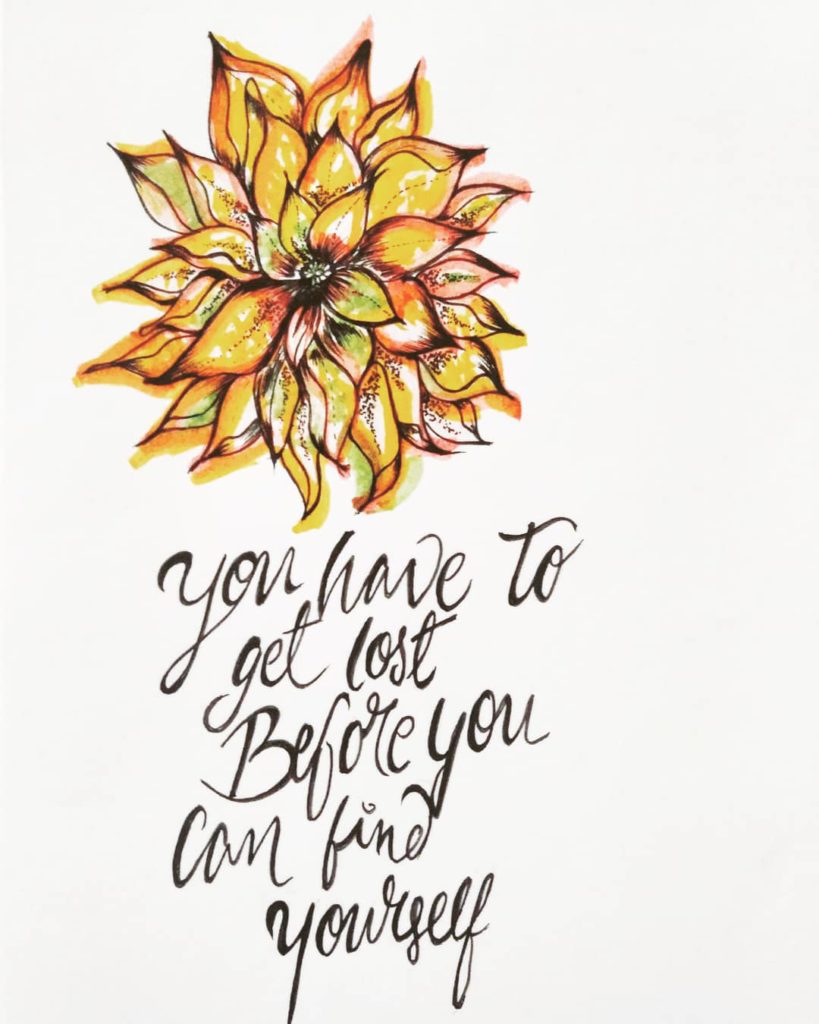 you have to
get lost
Before you
can find
yourself